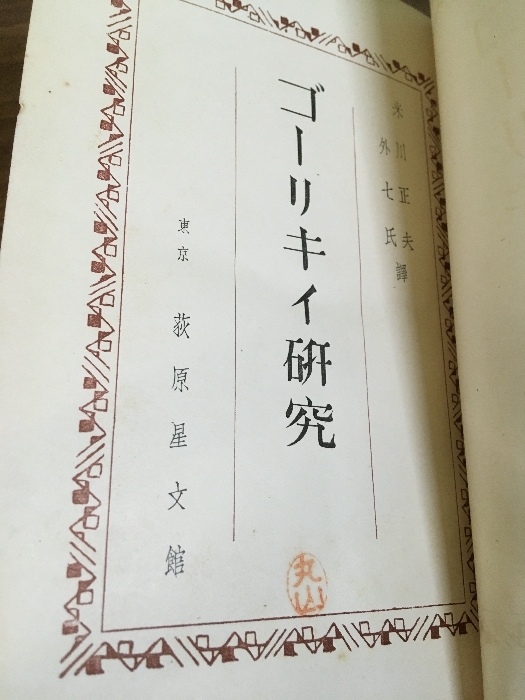 米川正夫
外七氏譯
ゴーリキイ研究
東京 荻原星文館
丸山